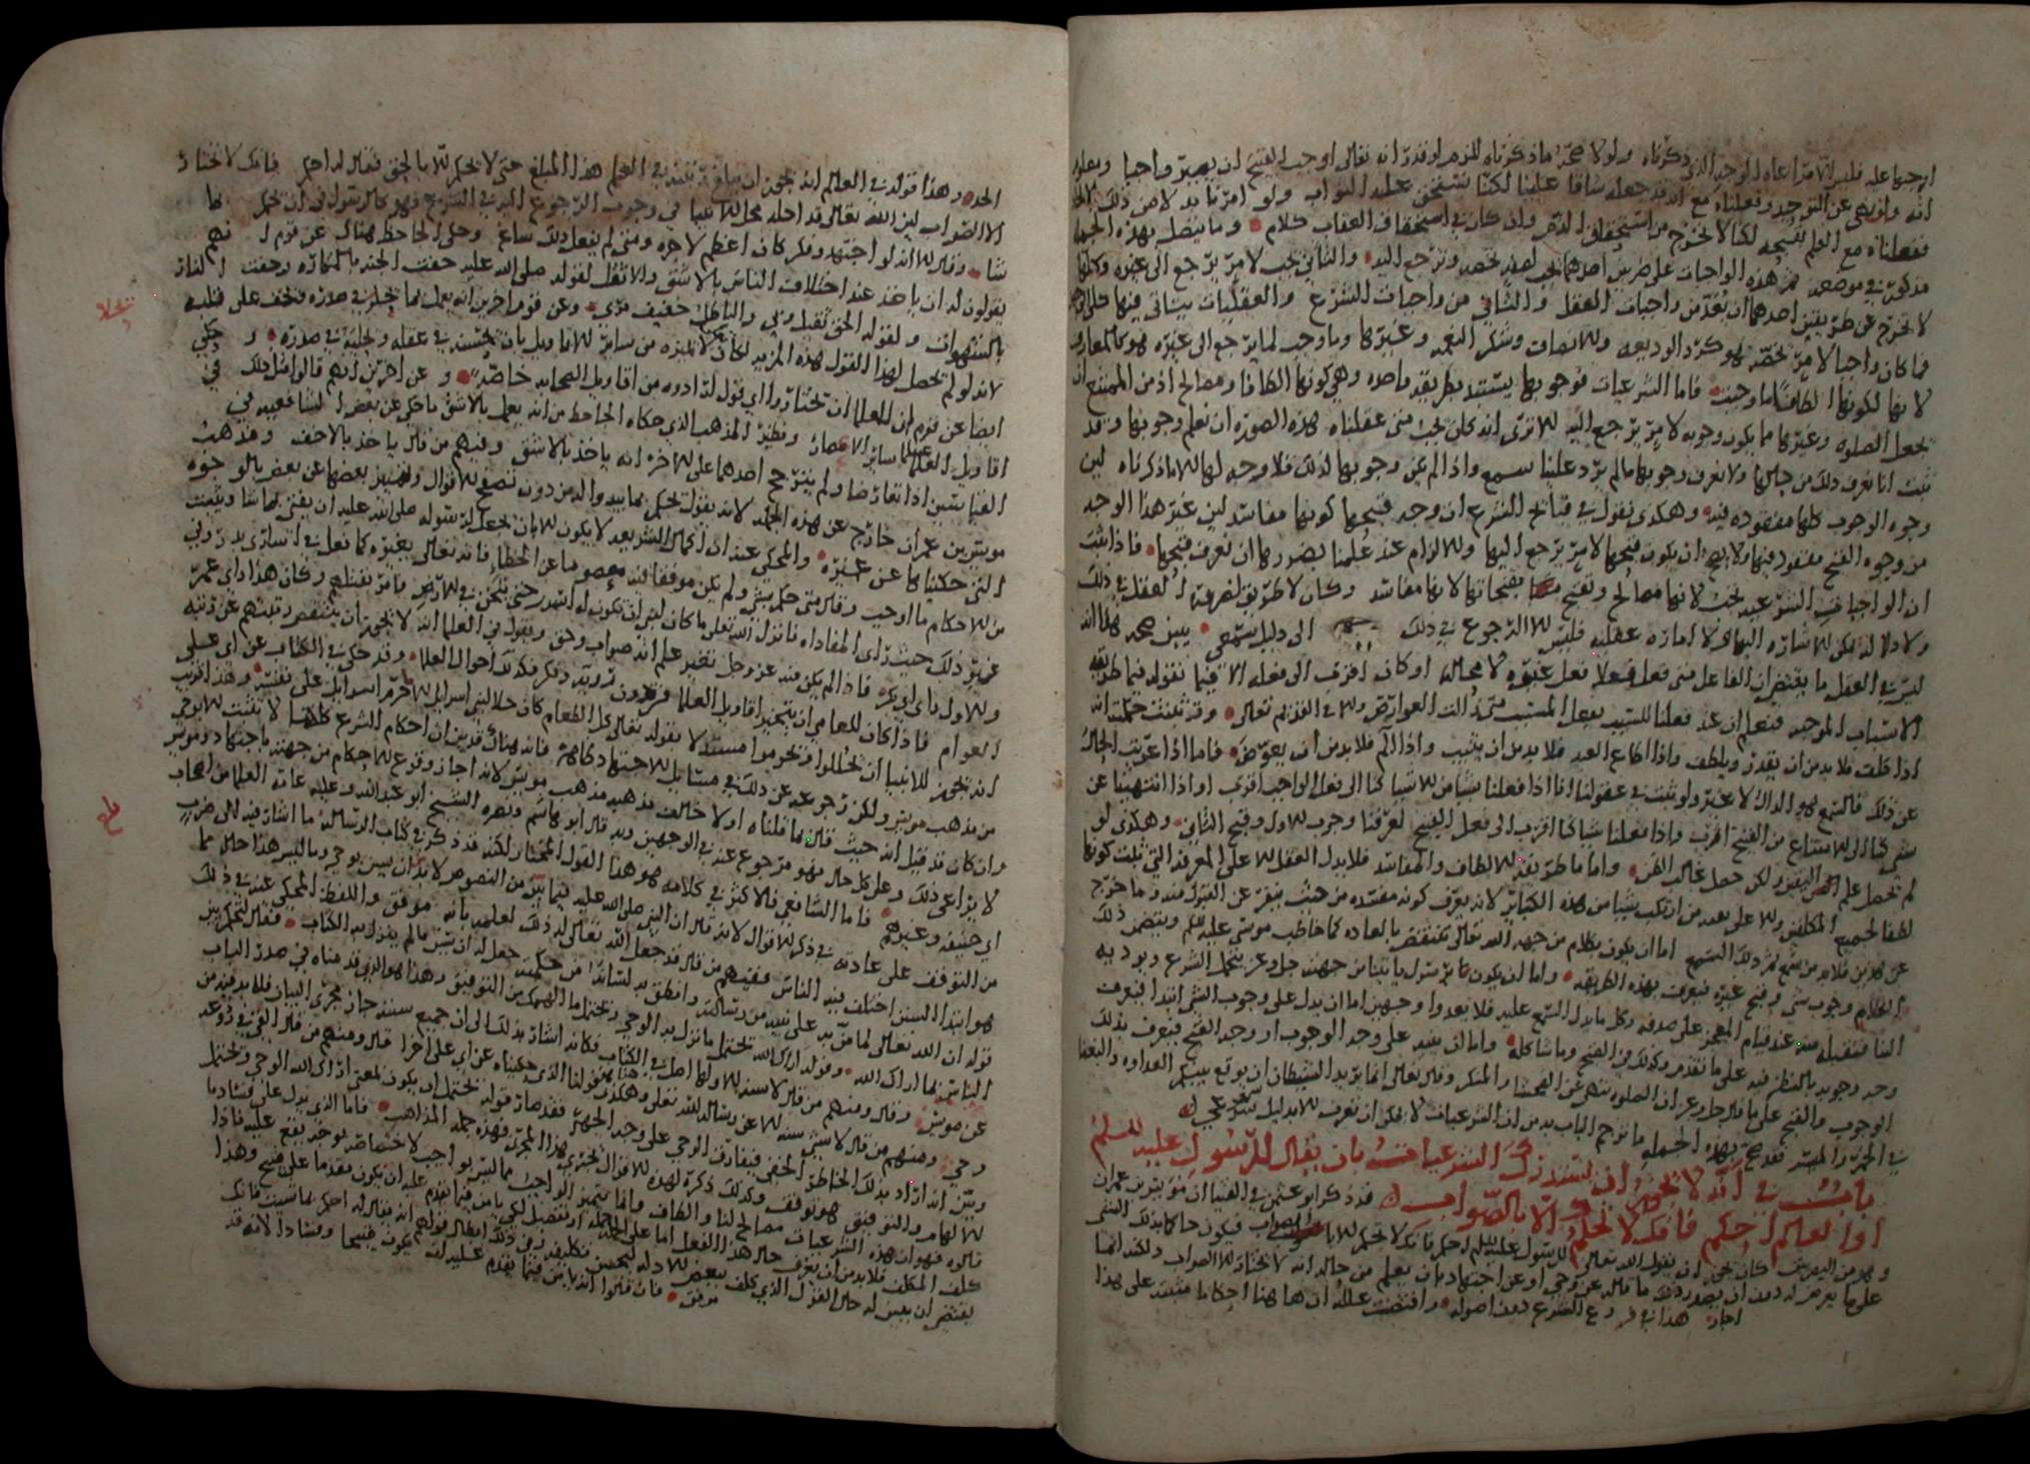 اوجبها عليه فليس لامر اعاه الوجه الذي ذكرناه ولولا صحة ما ذكرناه للزم لو قدرنا انه تعالى اوجب القبيح ان يصير واجبا
انه واذ نهى عن التوحيد وفعلناه مع انه قد جعله شاقا علينا لكنا نستحق عليه الثواب ولو امرنا بد لا من ذلك
ففعلناه مع العلم بقبحه لكنا لا نخرج من استحقاق الذم وان كان في استحقاق العقاب كلام وما يتصل بهذه الجملة
مذكور في موضعه ثم هذه الواجبات على ضربين احدهما يجب لامر يخصه ويرجع اليه والثاني يجب لامر يرجع الى غيره وكلها
لا تخرج عن طريقين احدهما ان يعد من واجبات العقل والثاني من واجبات الشرع والعقليات يتأتى فيها
فما كان واجبا لامر يخصه فهو كرد الوديعه وللانصاف وشكر النعمه وغيرها وما وجب لما يرجع الى غيره فهو كالمعارف
لانها لكونها الطافا ما وجبت فاما الشرعيات فوجوبها يستند بطريقه واحده وهي كونها الطافا ومصالح اذ من الممتنع ان
نجعل الصلوه وغيرها مما يكون وجوبه لامر يرجع اليه للا ترى انه كان يجب متى عقلناه هذه الصوره ان نعلم وجوبها وقد
ثبت انا نعرف ذلك من حالها ولا نعرف وجوبها ما لم يرد علينا سمع واذا لم يكن وجوبها لذلك فلا وجه لها للا ما ذكرناه لين
وجوه الوجوب كلها مفقوده فيه وهكذى نقول في قبائح الشرع ان وجه قبحها كونها مفاسد لين غير هذا الوجه
من وجوه القبح مفقود فيها ولا يصح ان يكون قبحها لامر يرجع اليها وللا لزام عند علمنا بصورها ان نعرف قبحها فاذا ثبت
ان الواجبات الشرعيه تجب لانها مصالح وتقبح مقبحاتها لانها مفاسد وكان لا طريق لمعرفة العقل في ذلك
ولا دلاله يمكن للاشاره اليها ولا اماره عقليه فليس للا الرجوع في ذلك الى دليل سمعي يبين صحه هذا انه
ليس في العقل ما يقتضي ان الفاعل متى فعل فعلا فعل غيره لا محاله او كان اقرب الى فعله الا فيما نقوله فيما طريقه
الاسباب الموجبه فنعلم ان عند فعلنا للسبب يحصل المسبب متى زالت العوارض وللا في القديم تعالى وقد ثبتت حكمته انه
اذا كلف فلا بد من ان يقدر ويلطف واذا اطاع العبد فلا بد من ان يثيب واذا آلم فلا بد من ان يعوض فاما اذا عريت الحال
عن ذلك فالسمع هو الدال لا غير ولو ثبت في عقولنا انا اذا فعلنا شيا من الاشيا كنا الى فعل الواجب اقرب او اذا انتهينا عن
شي كنا الى الامتناع من القبيح اقرب واذا فعلنا شيا كنا اقرب الى فعل القبيح لعرفنا وجوب للاول وقبح الثاني وهكذى لو
لم يحصل علم اليقين ولكن حصل غالب الظن واما ما طريقه للالطاف والمفاسد فلا يدل العقل للا على المعرفة التي ثبت كونها
لطفا لجميع المكلفين وللا على بعد من ارتكب شيا من هذه الكبائر لانه يعرف كونه مفسده من حيث ينفر عن القبول منه وما خرج
عن هذين فلا بد من سمع ثم ذلك السمع اما ان يكون بكلام من جهه الله تعالى تنتقض به العاده كما خاطب موسى عليه السلم ويتضمن ذلك
الكلام وجوب شي وقبح غيره فيعرف بهذه الطريقه واما ان يكون ما برسول ياتينا من جهته جل وعز يتحمل الشرع ويوديه
الينا فنقبله منه عند قيام المعجز على صدقه وكل ما يدل السمع عليه فلا يعدوا وجهين اما ان يدل على وجوب الشي ابتدا فيعرف
وجه وجوبه بالنظر فيه على ما تقدم وكذلك في القبيح وما شاكله واما ان ينبه على وجه الوجوب او وجه القبح فيعرف بذلك
الوجوب والقبح على ما قال جل وعز ان الصلوه تنهى عن الفحشا والمنكر وقال تعالى انما يريد الشيطان ان يوقع بينكم العداوه والبغضا
في الخمر والميسر فقد صح بهذه الجمله ما ترجم الباب به من ان الشرعيات لا يمكن ان تعرف للا بدليل سمعي
باب في انه لا يجوز ان تستدرك الشرعيات بان يقال للرسول عليه السلم
او العالم احكم فانك لا تحكم الا بالصواب قد ذكر ابو عثمن في الفتيا ان مويس بن عمران
وهو من البصريين كان يجوز ان يقول الله تعالى للرسول عليه السلم احكم فانك لا تحكم للا بالصواب فيكون حاكما بذلك الشي
على ما يعرض له دون ان يصدر ذلك ما قاله عن وحي او عن اجتهاد بان يعلم من حاله انه لا يختار للا الصواب ولكنه انما
اجاز هذا في فروع الشرع دون اصوله واقتضت علته ان هاهنا احكاما مبتنيه على هذا
الحد وهذا قوله في العالم انه يجوز ان يبلغ رتبته في العلم هذا المبلغ حتى لا يحكم للا بالحق فيقال له احكم فانك لا تختار
الا الصواب لين الله تعالى قد احله محل الانبيا في وجوب الرجوع اليه في الشرع فهو كالرسول في ان يحكم بما
شا وقال للا انه لو اجتهد وفكر كان اعظم لاجره ومتى لم يفعل ذلك ساغ وحكى الجاحظ هناك عن قوم انهم
يقولون له ان ياخذ عند اختلاف الناس بالاشق والاثقل لقوله صلى الله عليه حفت الجنه بالمكاره وحفت النار
بالشهوات ولقوله الحق ثقيل وبي والباطل خفيف مري وعن قوم اخرين انه يعمل بما يخطر في صدره ويخف على قلبه
لانه لو لم يحصل لهذا القول هذه المزيه لكان لا يميزه من سائر للاقاويل بان يحسنه في عقله ويجلبه في صدره وحكي
ايضا عن قوم ان للعلما ان تختار وا اي قول ارادوه من اقاويل الصحابه خاصه وعن اخرين انهم قالوا مثل ذلك في
اقاويل العلما سائر الاعصار ونظير المذهب الذي حكاه الجاحظ من انه يعمل بالاشق ما حكي عن بعض الشافعيه في
القياسين اذا تعارضا ولم يترجح احدهما على للاخر انه ياخذ بالاشق وفيهم من قال ياخذ بالاخف ومذهب
مويس بن عمران خارج عن هذه الجمله لانه يقول تحكم بما يبدو اله من دون تصفح للاقوال وتمييز بعضها عن بعض بالوجوه
التي حكيناها عن غيره والمحكي عنه ان اكمال الشريعه لا يكون للا بان يجعل لرسوله صلى الله عليه ان يفتي بما شا ويثبت
من للاحكام ما اوجب وقال متى حكم بشي ولم يكن موفقا فيه معصوما عن الخطا فانه تعالى يغيره كما فعل في اسارى بدر وفي
غير ذلك حيث راى المفاداه فانزل الله تعلى ما كان لنبي ان يكون له اسرى حتى يثخن في للارض فامر بقتلهم وكان هذا راى عمر
وللاول راى ابي بكر فاذا لم يكن منه عز وجل تغيير علم انه صواب وحق ويقول في العالم انه لا يجوز ان ينتقص رتبتهم عن رتبه
العوام فاذا كان للعامي ان يتخير اقاويل العلما من دون ترويه وفكر فكذلك احوال العلما وقد حكى في الكتاب عن ابي علي
انه يجوز للانبيا ان يحللوا ويحرموا مستدلا بقوله تعالى كل الطعام كان حلا لبني اسرايل للا ما حرم اسرايل على نفسه وهذا اقرب
من مذهب مويس ولكن رجوعه عن ذلك في مسائل للاجتهاد كالامر
وان كان قد قيل انه حيث قال بما قلناه اولا خالف مذهبه مذهب مويس لانه اجاز وقوع للاحكام من جهته باجتهاد ومويس
لا يراعي ذلك وعلى كل حال فهو مرجوع عنه في الوجهين وبه قال ابو هاشم ونصره الشيخ ابو عبد الله وعليه عامه العلما من اصحاب
ابي حنيفه وغيرهم فاما الشافعي فالاكثر في كلامه هو هذا القول المختار لكنه قد ذكر في كتاب الرساله ما اشار فيه الى ضرب
من التوقف على عادته في ذكر للاقوال لانه قال ان النبي صلى الله عليه فيما بين من النصوص لا بد ان يبين بوحي وما ليس هذا حاله مما
هو ابتدا السنن اختلف فيه الناس فمنهم من قال قد جعل الله تعالى له ذلك لعلمه بانه موفق واللفظ المحكي عنه في ذلك
قوله ان الله تعالى لما من به على نبيه من رسالته وانطق به لسانه من حكمته جعل له ان يسن ما لم ينزل به الكتاب فقال لتحكم بين
الناس بما اراك الله وقوله اراك الله يحتمل ما نزل به الوحي ويحتمل ما الهمه من التوفيق وهذا هو الذي قدمناه في صدر الباب
عن مويس وقال ومنهم من قال لا سنه للا ولها اصل في الكتاب فكانه اشار بذلك الى ان جميع سننه جار مجرى البيان فلا بد فيه من
وحي ومنهم من قال لا يسن سنه للا عن رساله الله تعلى وهكذى قولنا الذي حكيناه عن ابي علي اخرا قال ومنهم من قال القي في روعه
وبين انه اراد بذلك الخاطر الخفي فيفارق الوحي على وجه الجهر فقد صار قوله يحتمل ان يكون المعنى اراك الله الوحي ويحتمل
للالهام والتوفيق هو توقف وكذلك ذكره لهذه للاقوال يجري هذا المجرى فهذه جمله المذاهب فاما الذي يدل على فساد ما
قالوه فهو ان هذه الشرعيات مصالح لنا والطاف وانما يتميز الواجب مما ليس بواجب لاختصاصه بوجه يقع عليه فاذا
كلف المكلف فلا بد من ان يعرف حال هذا الفعل اما على الجمله او تفصيل لكي يامن فيما يقدم عليه ان يكون مقدما على قبيح وهذا
يقتضي ان يبين له حال الفعل الذي كلف ببعض للادله ليحسن تكليفه وفي ذلك ابطال قولهم انه يقال له احكم بما شيت فانك
موفق فان قالوا انه يامن فيما يقدم عليه ان يكون قبيحا وفسادا لانه قد